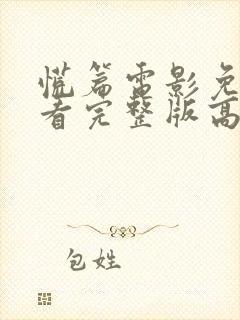 慌篇雷影免
看完整版高
包姓